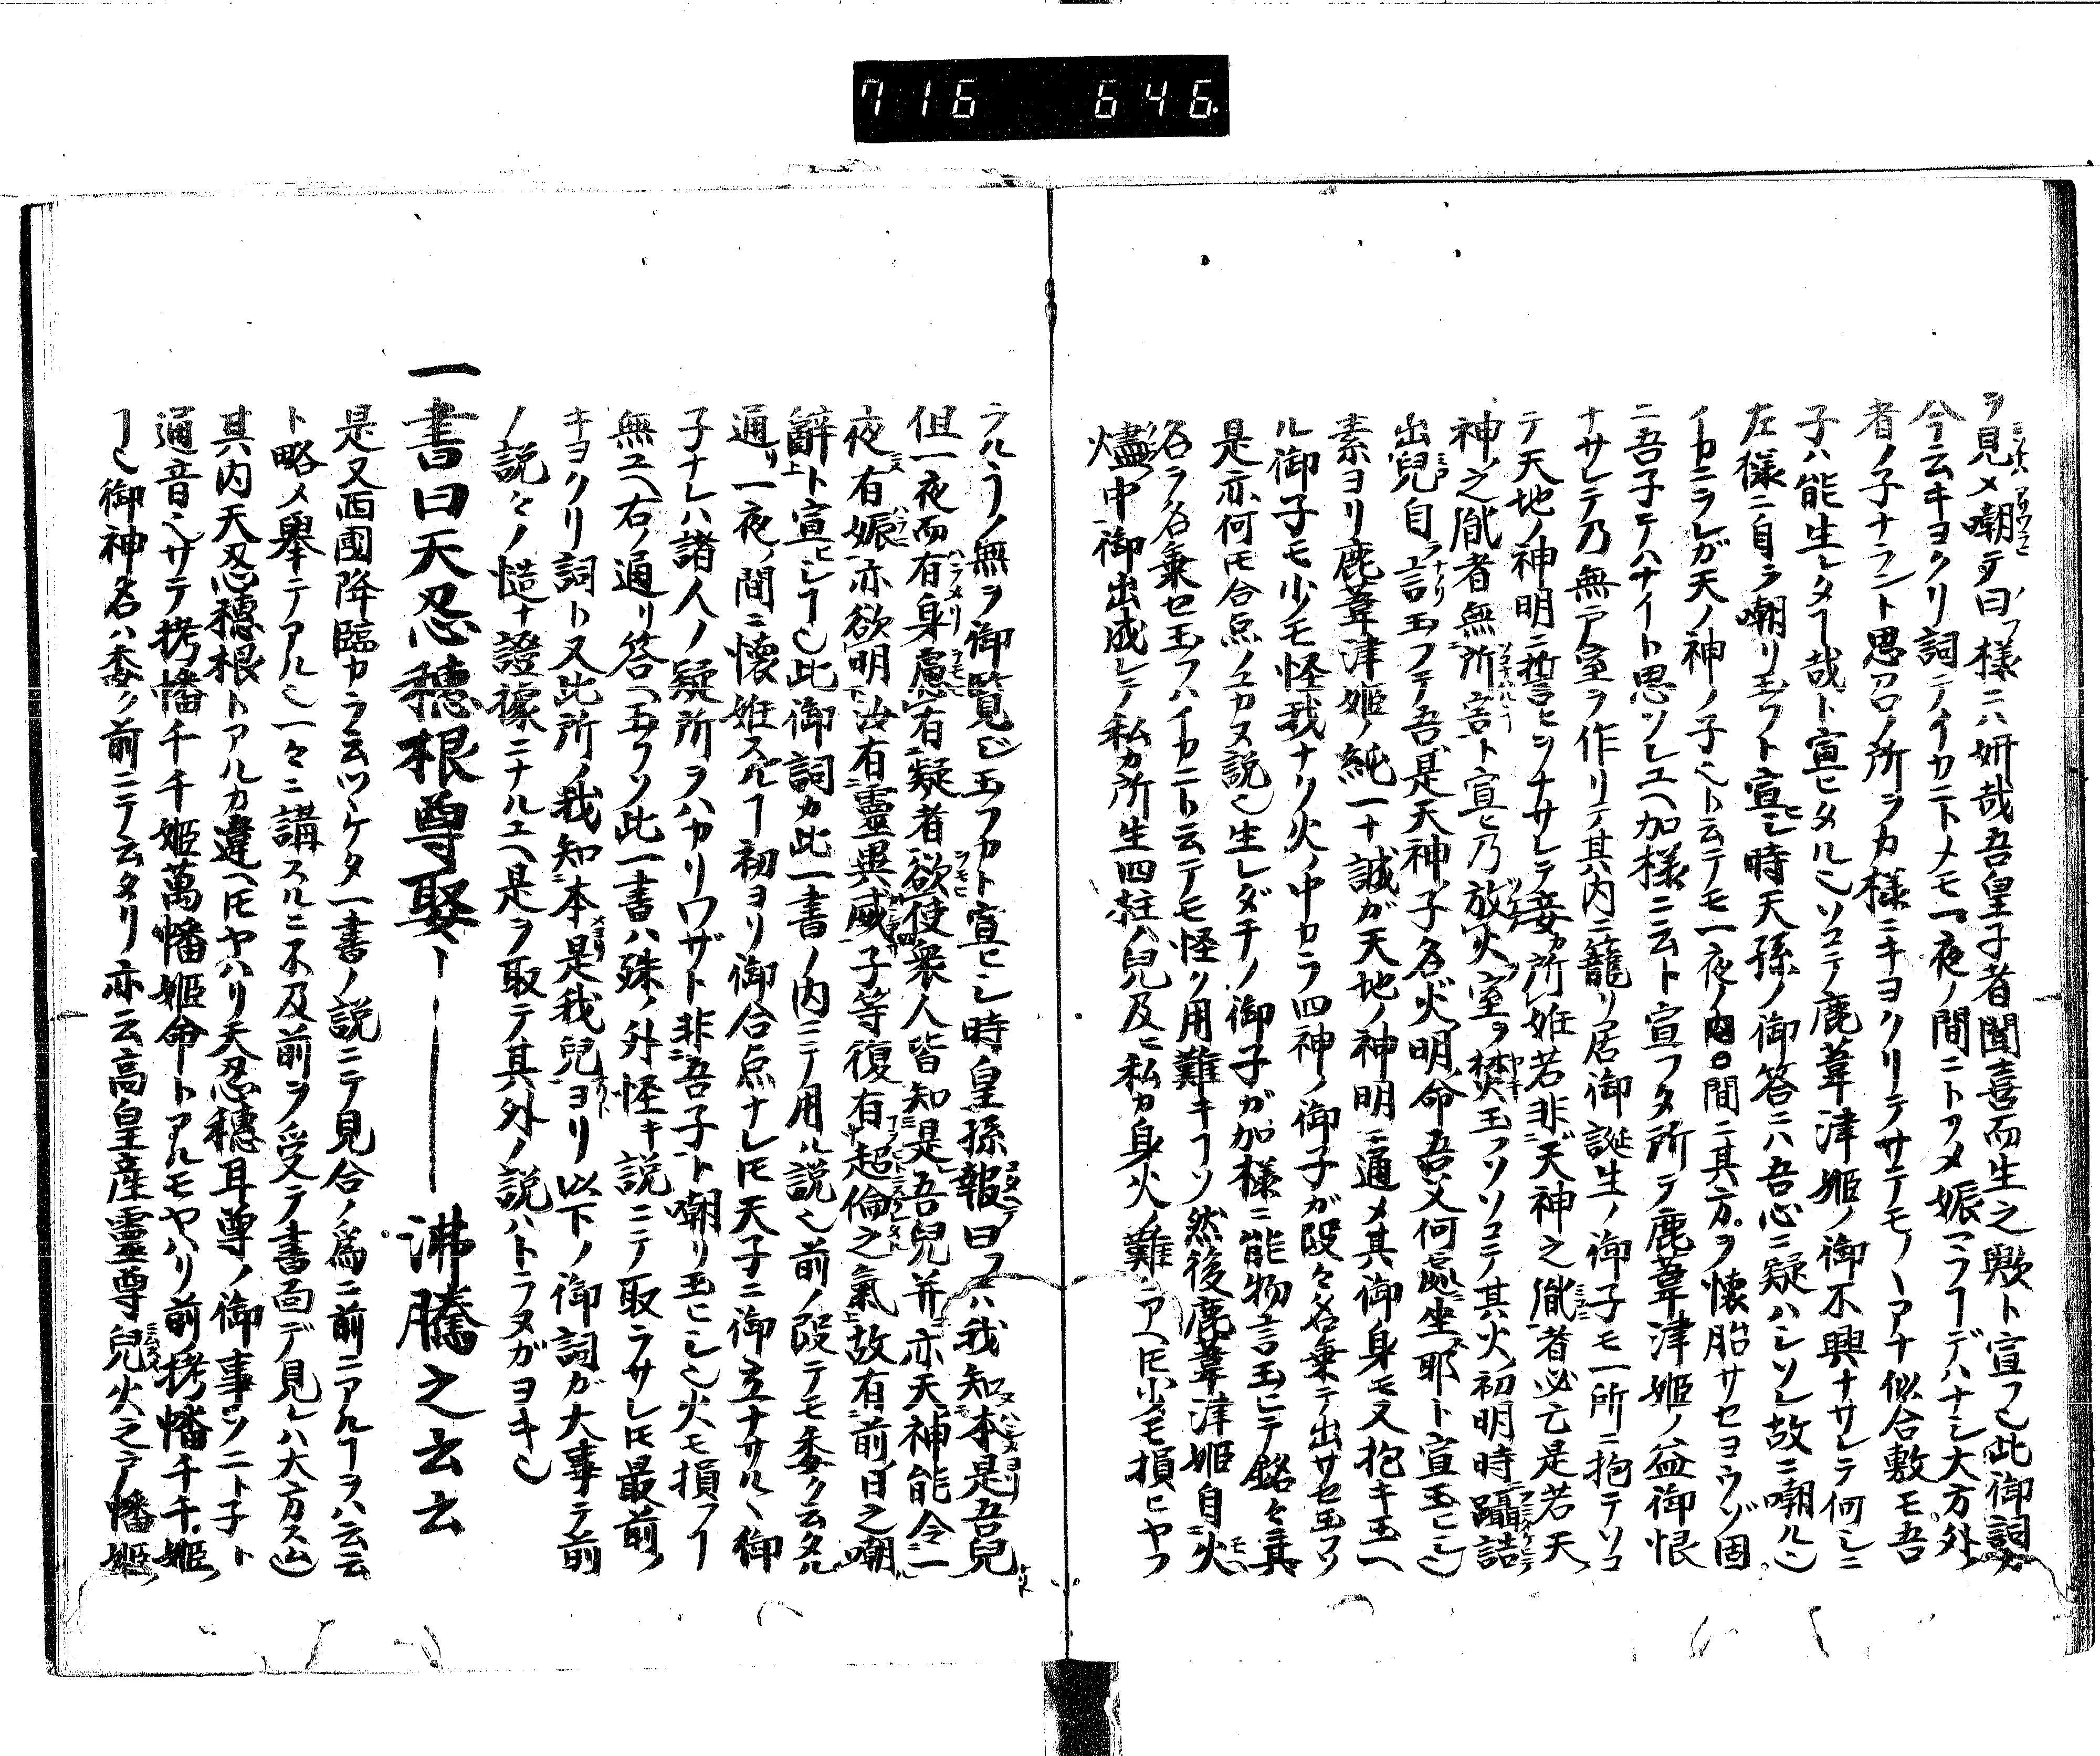 716 646.
ヲ見メ嘲テ曰フ様ニハ妍哉吾皇子者聞喜而生之歟ト宣フ也此御詞カ
今云キヨクリ詞テイカニトメモ一夜ノ間ニトツメ娠マラフヿデハナシ大方外
者ノ子ナラント思召ノ所ラカ様ニキヨクリテサテモノヽアナ似合敷モ吾
子ハ能生レタヿ哉ト宣ヒタル也ソコテ鹿葦津姫ノ御不興ナサレテ何しニ
左様ニ自ラ嘲リ玉フト宣ヒシ時天孫ノ御答ニハ吾心ニ疑ハシソレ故ニ嘲ル也
イカニヲレガ天ノ神ノ子也ト云テモ一夜ノ内ノ間ニ其方ヲ懐胎サセヨウゾ固
ニ吾子テハナイト思ソレユヘ加様ニ云ト宣フタ所テ鹿葦津姫ノ益御恨
ナサレテ乃無戸室ヲ作リテ其内ニ籠リ居御誕生ノ御子モ一所ニ抱テソコ
テ天地ノ神明ニ誓ヒヲナサレテ妾カ所姙若非天神之胤者必亡是若天
神之胤者無所害ト宣ヒ乃放火室ヲ焚玉フソソコテ其火初明時躡誥
出兒自言玉フテ吾是天神子名火明命吾父何處坐耶ト宣玉ヒシ也
素ヨリ鹿葦津姫ノ純一ナ誠ガ天地ノ神明ニ通メ其御身モ又抱キ玉ヘ
ル御子モ少モ怪我ナリ火ノ中カラ四神ノ御子ガ段々名乗テ出サセ玉フソ
是亦何モ合点ノユカヌ説也生レダチノ御子ガ加様ニ能物言玉ヒテ銘々其
名ヲ名乗セ玉フハイカニト云テモ怪ク用難キヿソ然後鹿葦津姫自火
燼中御出成レテ私カ所生四柱ノ兒及ニ私カ身火ノ難ニアヘ𪜈少モ損ヒヤフ
ラルヽヿノ無ヲ御覧ジ玉フカト宣ヒシ時皇孫報曰フハ我知本是吾兒
但一夜而有身慮有疑者欲使衆人皆知是吾兒并亦天神能令一
夜有娠亦欲明汝有靈異威子等復有超倫之氣故有前日之嘲
辭ト宣ヒシヿ也此御詞カ此一書ノ内ニテ用ル説也前ノ段テモ委ク云タル
通リ一夜ノ間ニ懐姙スルヿ初ヨリ御合点ナレ𪜈天子ニ御立ナサルヽ御
子ナレハ諸人ノ疑所ヲハカリワザト非吾子ト嘲リ玉ヒし也火モ損フヿ
無ユヘ右ノ通リ答ヘ玉フソ此一書ハ殊ノ外怪キ説ニテ取ラサレ𪜈最前ノ
キヨクリ詞ト又此所ノ我知本是我兒ヨリ以下ノ御詞ガ大事テ前
ノ説々ノ慥ナ證據ニナルユヘ是ヲ取テ其外ノ説ハトラヌガヨキ也
一書曰天忍穗根尊娶ー沸騰之云云
是又西國降臨カラ云ツヽケタ一書ノ説ニテ見合ノ爲ニ前ニアルヿヲハ云云
ト略メ舉テアル也一々ニ講スルニ不及前ヲ受テ書面デ見レハ大方スム也
其内天忍穗根トアルカ違ヘ𪜈ヤハリ天忍穗耳尊ノ御事ソニト子ト
通音也サテ栲幡千千姫萬幡姫命トアルモヤハリ前ノ栲幡千千姫ノ
ヿ也御神名ハ委ク前ニテ云タリ亦云高皇産靈尊兒火之戸幡姫